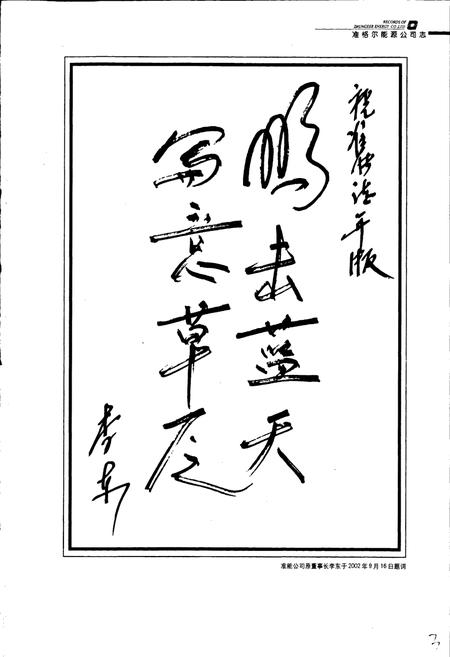 RECORDS OF
ZHUNGEER ENERGY CO.,LTD
准格尔能源公司志
祝准能志版
鹏击蓝天
写意草原
李东
准能公司原董事长李东于2002年9月16日题词